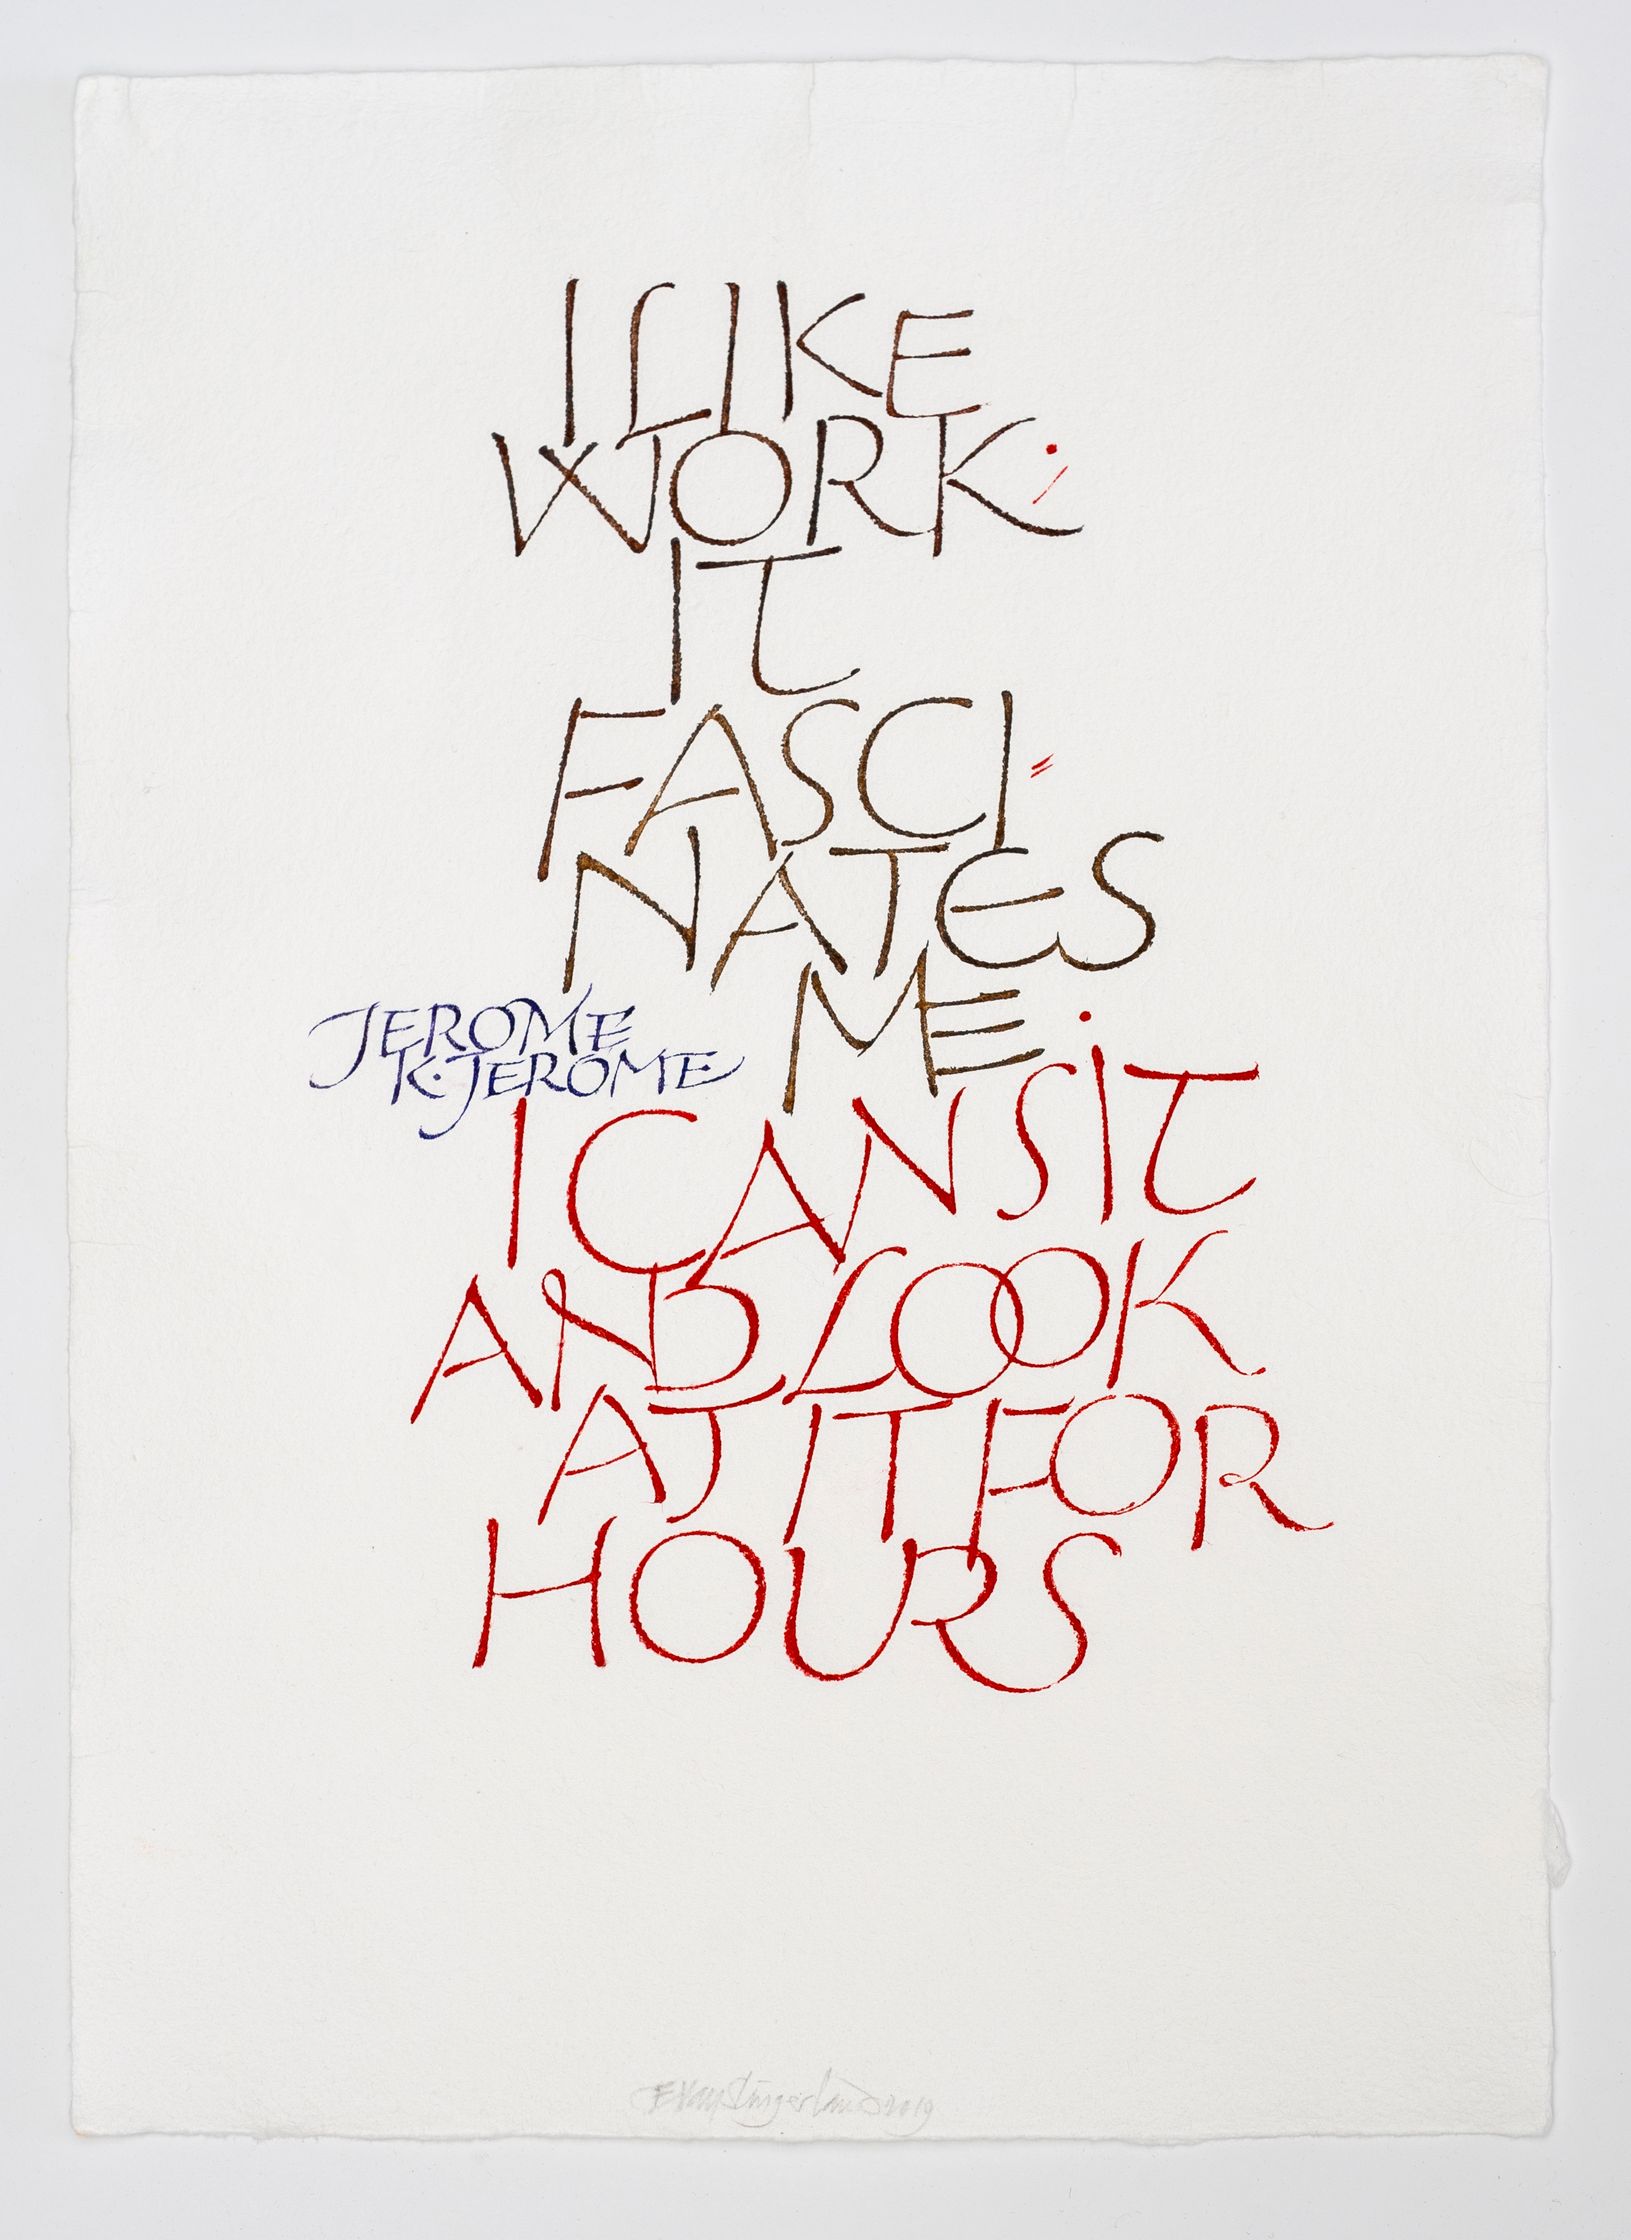 I LIKE
WORK;
IT
FASCI=
NATES
ME.
JEROME
K. JEROME
I CAN SIT
AND LOOK
AT IT FOR
HOURS
2019